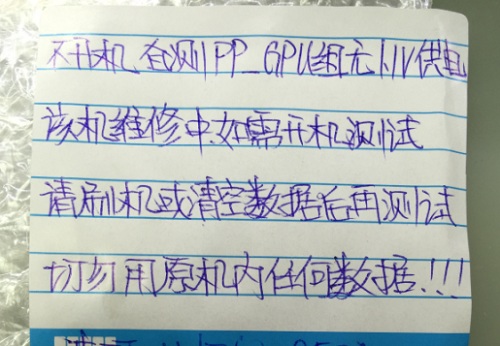 不开机、查测PP_GPU组无1.1V供电
该机维修中、如需开机测试
请刷机或清空数据后再测试
切勿用原机内任何数据!!!